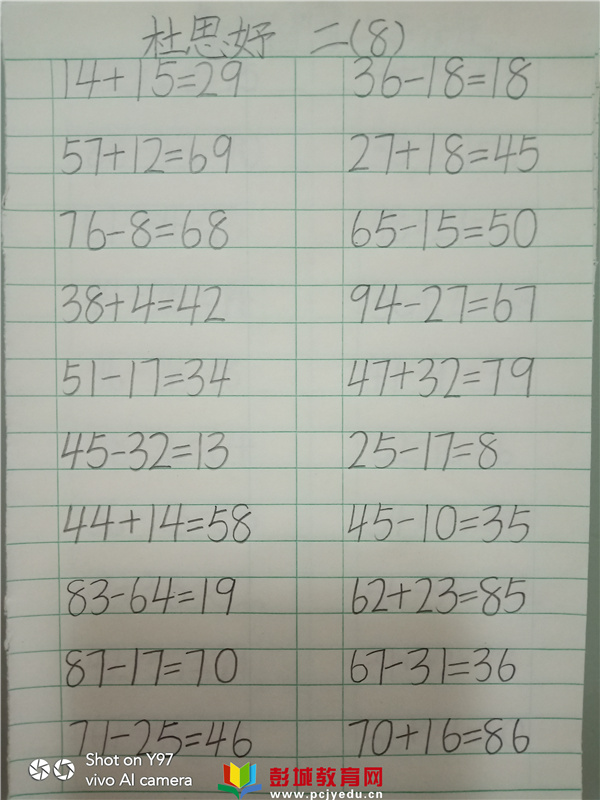 杜思妤 二(8)
14+15=29 36-18=18
57+12=69 27+18=45
76-8=68 65-15=50
38+4=42 94-27=67
51-17=34 47+32=79
45-32=13 25-17=8
44+14=58 45-10=35
83-64=19 62+23=85
87-17=70 67-31=36
71-25=46 70+16=86
Shot on Y97
vivo AI camera
彭城教育网
www.pcjyedu.cn